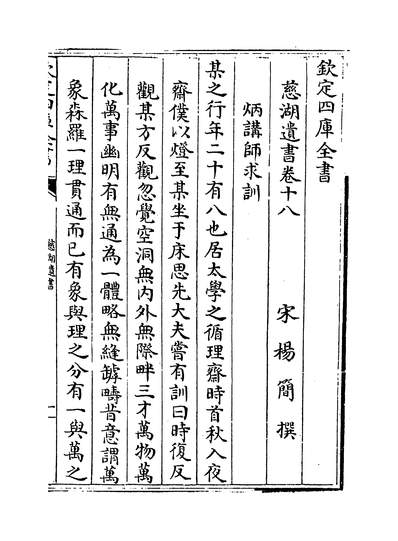 欽定四庫全書
慈湖遺書卷十八
宋楊簡撰
炳講師求訓
某之行年二十有八也居太學之循理齋時首秋入夜
齋僕以燈至某坐于床思先大夫嘗有訓曰時復反
觀某方反觀忽覺空洞無內外無際畔三才萬物萬
化萬事幽明有無通為一體略無縫罅疇昔意謂萬
象森羅一理貫通而已有象與理之分有一與萬之
慈湖遺書